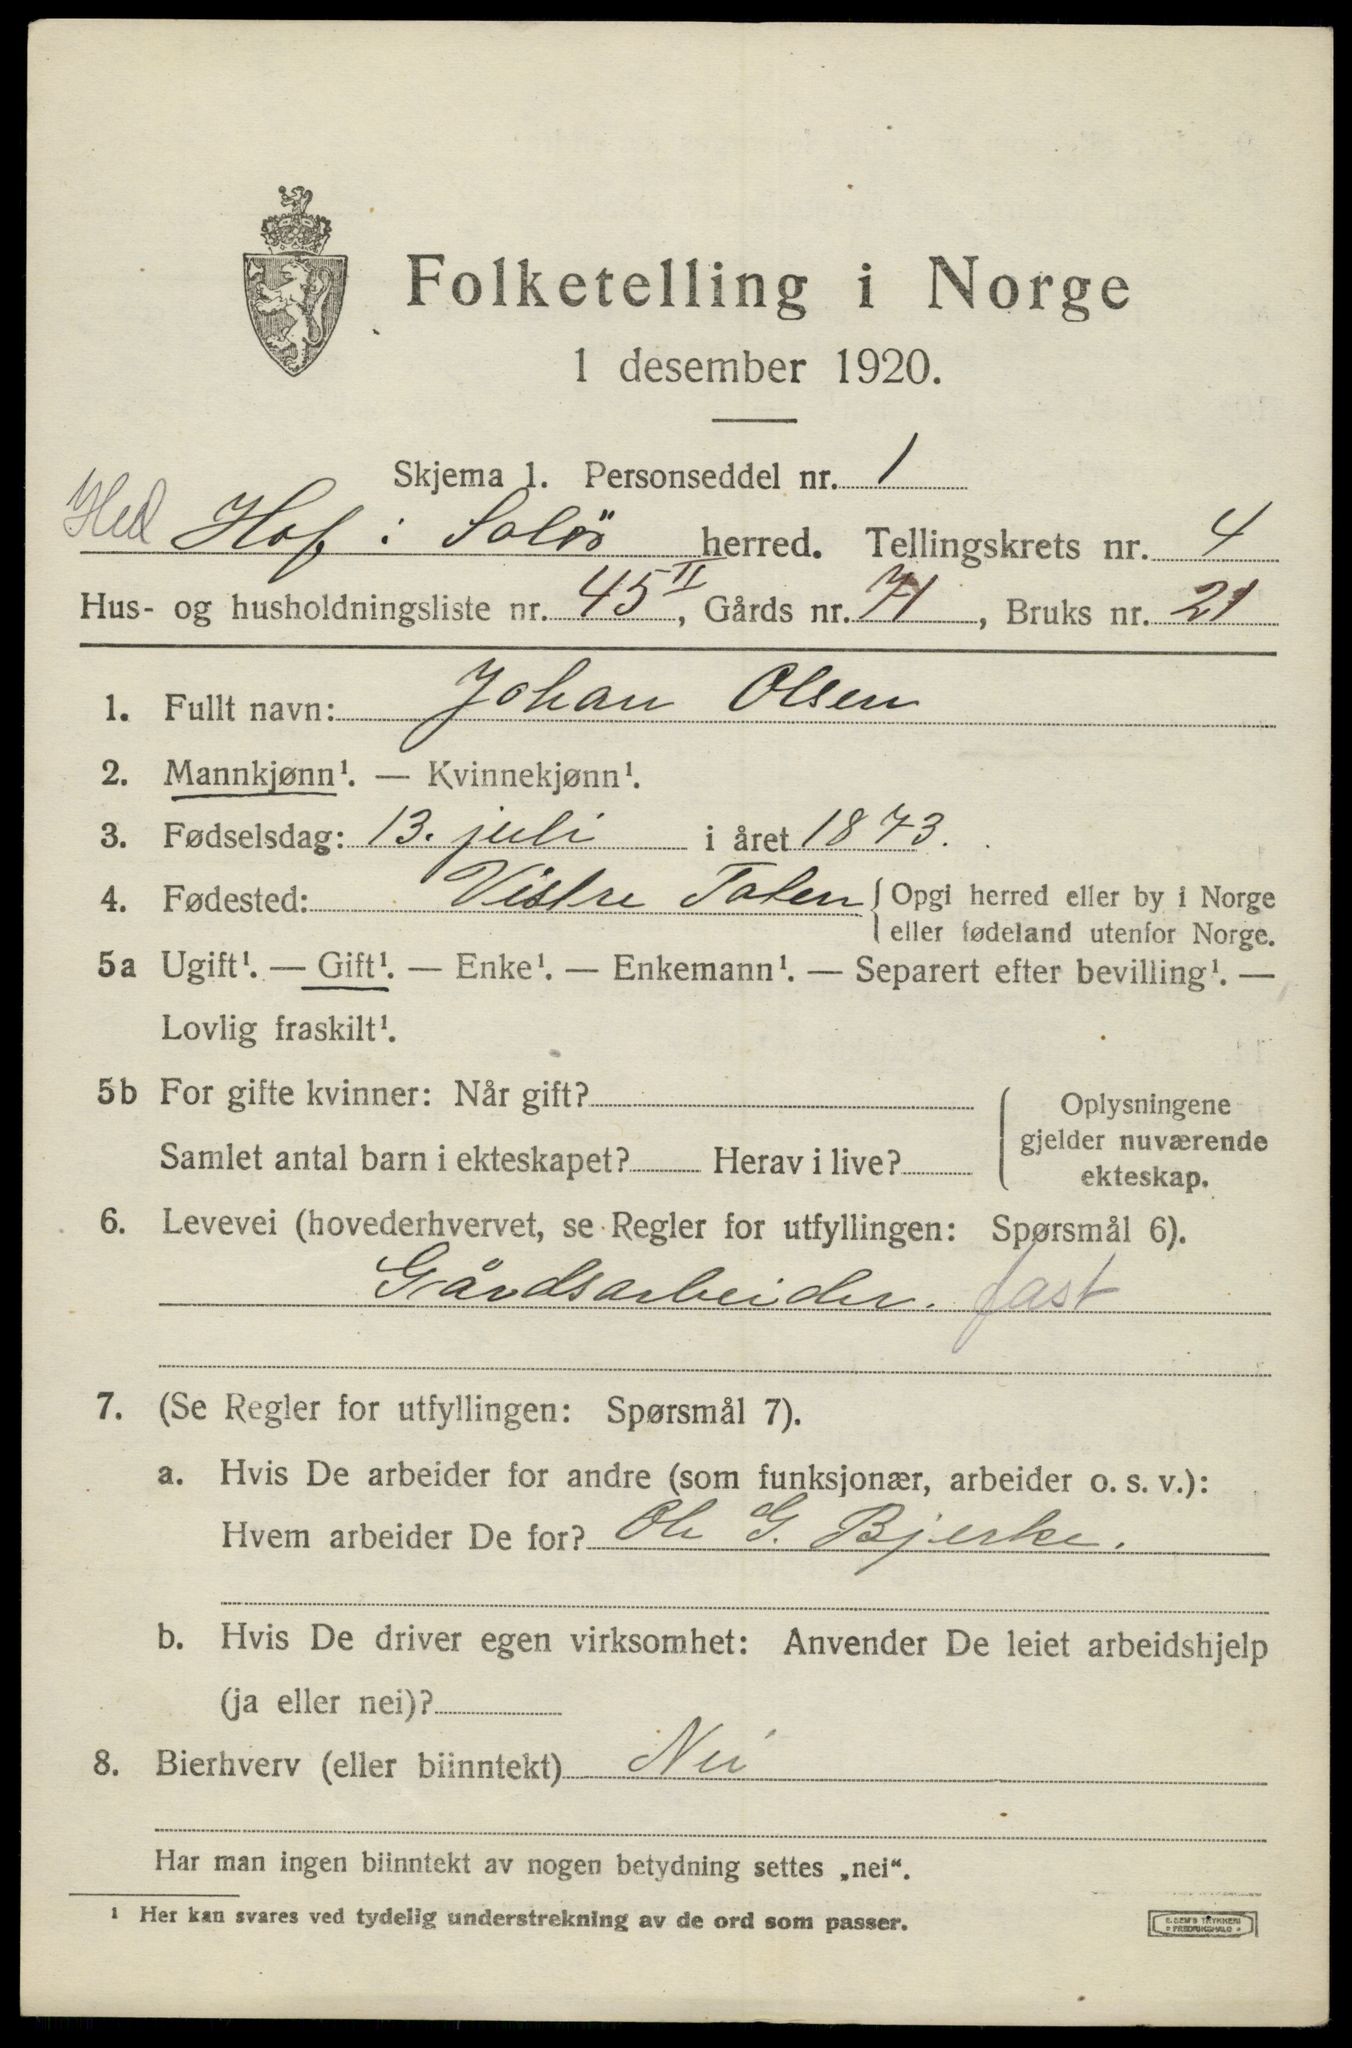 Folketelling i Norge
1 desember 1920.
Skjema 1. Personseddel nr. 1
Hed Hof i Solör herred. Tellingskrets nr. 4
Hus- og husholdningsliste nr. 45 II, Gårds nr. 71, Bruks nr. 21
1. Fullt navn: Johan Olsen
2. Mannkjønn¹. — Kvinnekjønn¹.
3. Fødselsdag: 13. juli i året 1873.
4. Fødested: Vestre Toten { Opgi herred eller by i Norge
eller fødeland utenfor Norge.
5a Ugift¹. — Gift¹. — Enke¹. — Enkemann¹. — Separert efter bevilling¹. —
Lovlig fraskilt¹.
5b For gifte kvinner: Når gift?
Samlet antal barn i ekteskapet? Herav i live?
Oplysningene
gjelder nuværende
ekteskap.
6. Levevei (hovederhvervet, se Regler for utfyllingen: Spørsmål 6).
Gårdsarbeider. fast
7. (Se Regler for utfyllingen: Spørsmål 7).
a. Hvis De arbeider for andre (som funksjonær, arbeider o. s. v.):
Hvem arbeider De for? Ole G. Bjerke.
b. Hvis De driver egen virksomhet: Anvender De leiet arbeidshjelp
(ja eller nei)?
8. Bierhverv (eller biinntekt) Nei
Har man ingen biinntekt av nogen betydning settes „nei“.
¹ Her kan svares ved tydelig understrekning av de ord som passer.
E. SEM'S TRYKKERI
FREDRIKSHALD